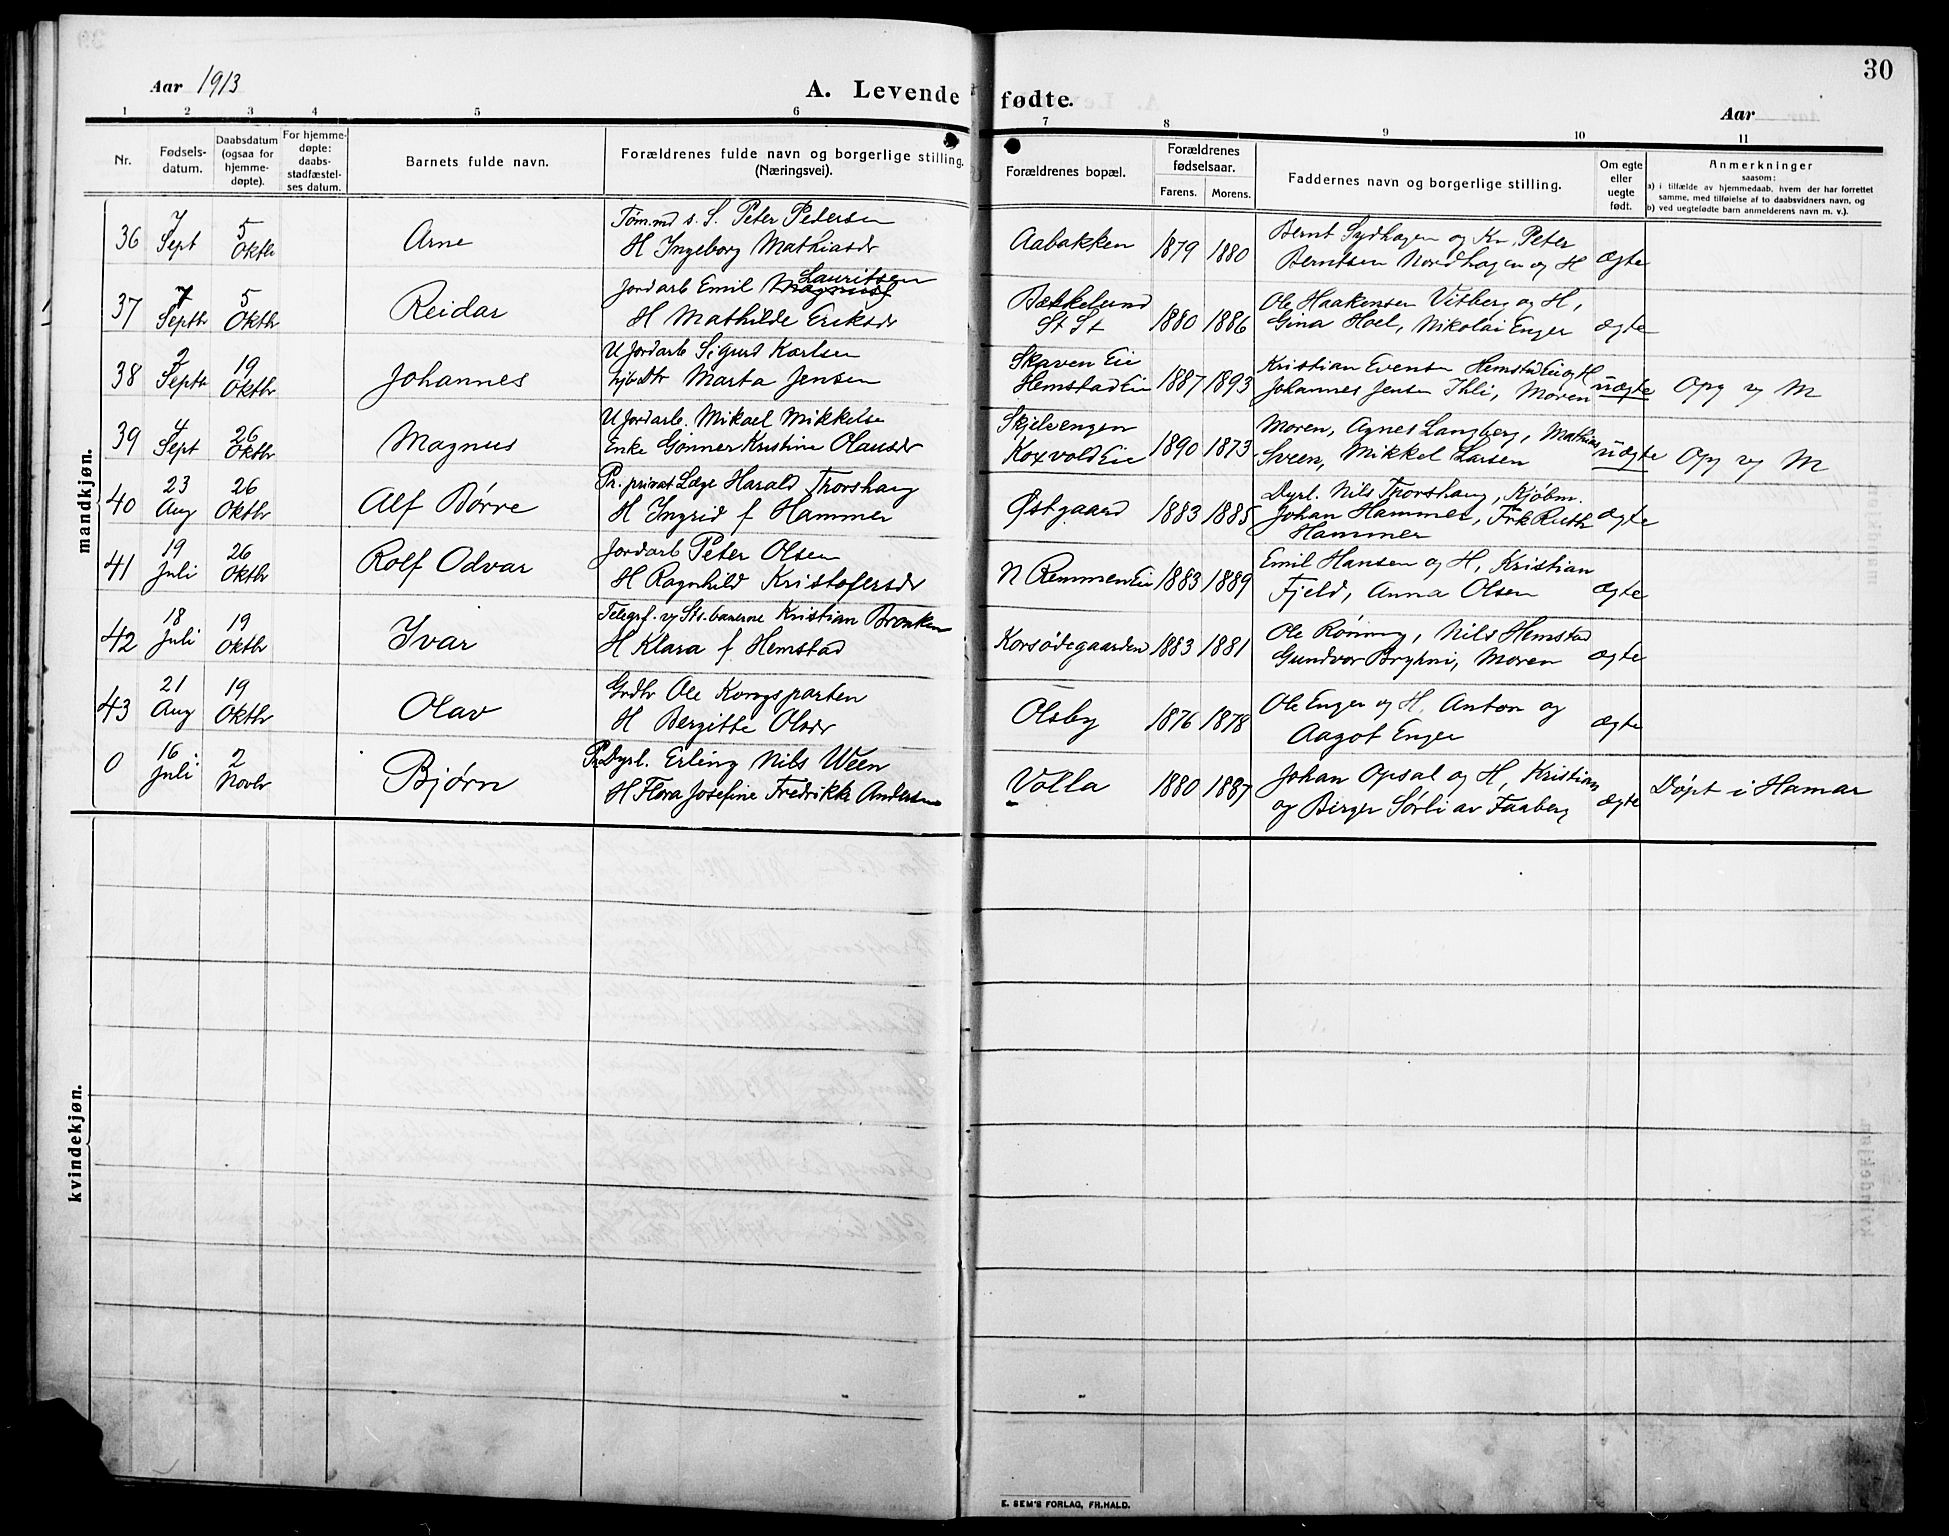 30
Aar 1913
A. Levende fødte.
Aar
1 2 3 4 5 6 7 8 9 10 11
Nr.
Fødsels-
datum.
Daabsdatum
(ogsaa for
hjemme-
døpte).
For hjemme-
døpte:
daabs-
stadfæstel-
ses datum.
Barnets fulde navn.
Forældrenes fulde navn og borgerlige stilling.
(Næringsvei).
Forældrenes bopæl.
Forældrenes
fødselsaar.
Farens. Morens.
Faddernes navn og borgerlige stilling.
Om egte
eller
uegte
født.
Anmerkninger
saasom:
a) i tilfælde av hjemmedaab, hvem der har forrettet
samme, med tilføielse af to daabsvidners navn, og
b) ved uegtefødte barn anmelderens navn m. v.).
mandkjøn.
36 7 Sept 5 Oktbr Arne
Tøm.md s. S. Peter Pedersen
H Ingeborg Mathiasdr
Aabakken 1879 1880
Bernt Sydhagen og Kr, Peter
Berntsen Nordhagen og H
ægte
37 7 Septbr 5 Oktbr Reidar
Lauritsen
Jordarb Emil Magnus
H Mathilde Eriksdr
Bækkelund
St St 1880 1886
Ole Haakensen Vitberg og H,
Gina Hoel, Nikolai Enger
ægte
38 2 Septbr 19 Oktbr Johannes
U Jordarb Sigurd Karlsen
Marta Jensen
Skaven Eie
Hemstad Eie 1887 1893
Kristian Evensen Hemstad Eie og H
Johannes Jensen Ihli, Moren
uægte Opg v M
39 4 Sept 26 Oktbr Magnus
U Jordarb. Mikael Mikkelse
Enke Gønner Kristine Olausdr
Skjelvengen
Koxvold Eie 1890 1873
Moren, Agnes Langberg, Mathias
Sveen, Mikkel Larsen
uægte Opg v M
40 23 Aug 26 Oktbr Alf Børre
Pr. privat Læge Harald Thorshaug
H Ingrid f Hammer
Østgaard 1883 1885
Dyrl. Nils Thorshaug, Kjøbm.
Johan Hammer, Frk Ruth
Hammer
ægte
41 19 Juli 26 Oktbr Rolf Odvar
Jordarb Peter Olsen
H Ragnhild Kristofersdr
N Remmen Eie 1883 1889
Emil Hansen og H, Kristian
Fjeld, Anna Olsen
ægte
42 18 Juli 19 Oktbr Ivar
Telegrf. v Sts.banerne Kristian Bronken
H Klara f Hemstad
Korsødegaarden 1883 1881
Ole Røning, Nils Hemstad
Gundvor Bryhni, Moren
ægte
43 21 Aug 19 Oktbr Olav
Grdbr Ole Kongsparten
H Bergitte Olsdr
Olsby 1876 1878
Ole Enger og H, Anton og
Aagot Enger
ægte
0 16 Juli 2 Novbr Bjørn
Pr Dyrl. Erling Nils Ween
H Flora Josefine Fredrikke Andersen
Volla 1880 1887
Johan Opsal og H, Kristian
og Birger Sørli av Faaberg
ægte Døpt i Hamar
kvindekjøn.
E. SEM'S FORLAG, FR.HALD.